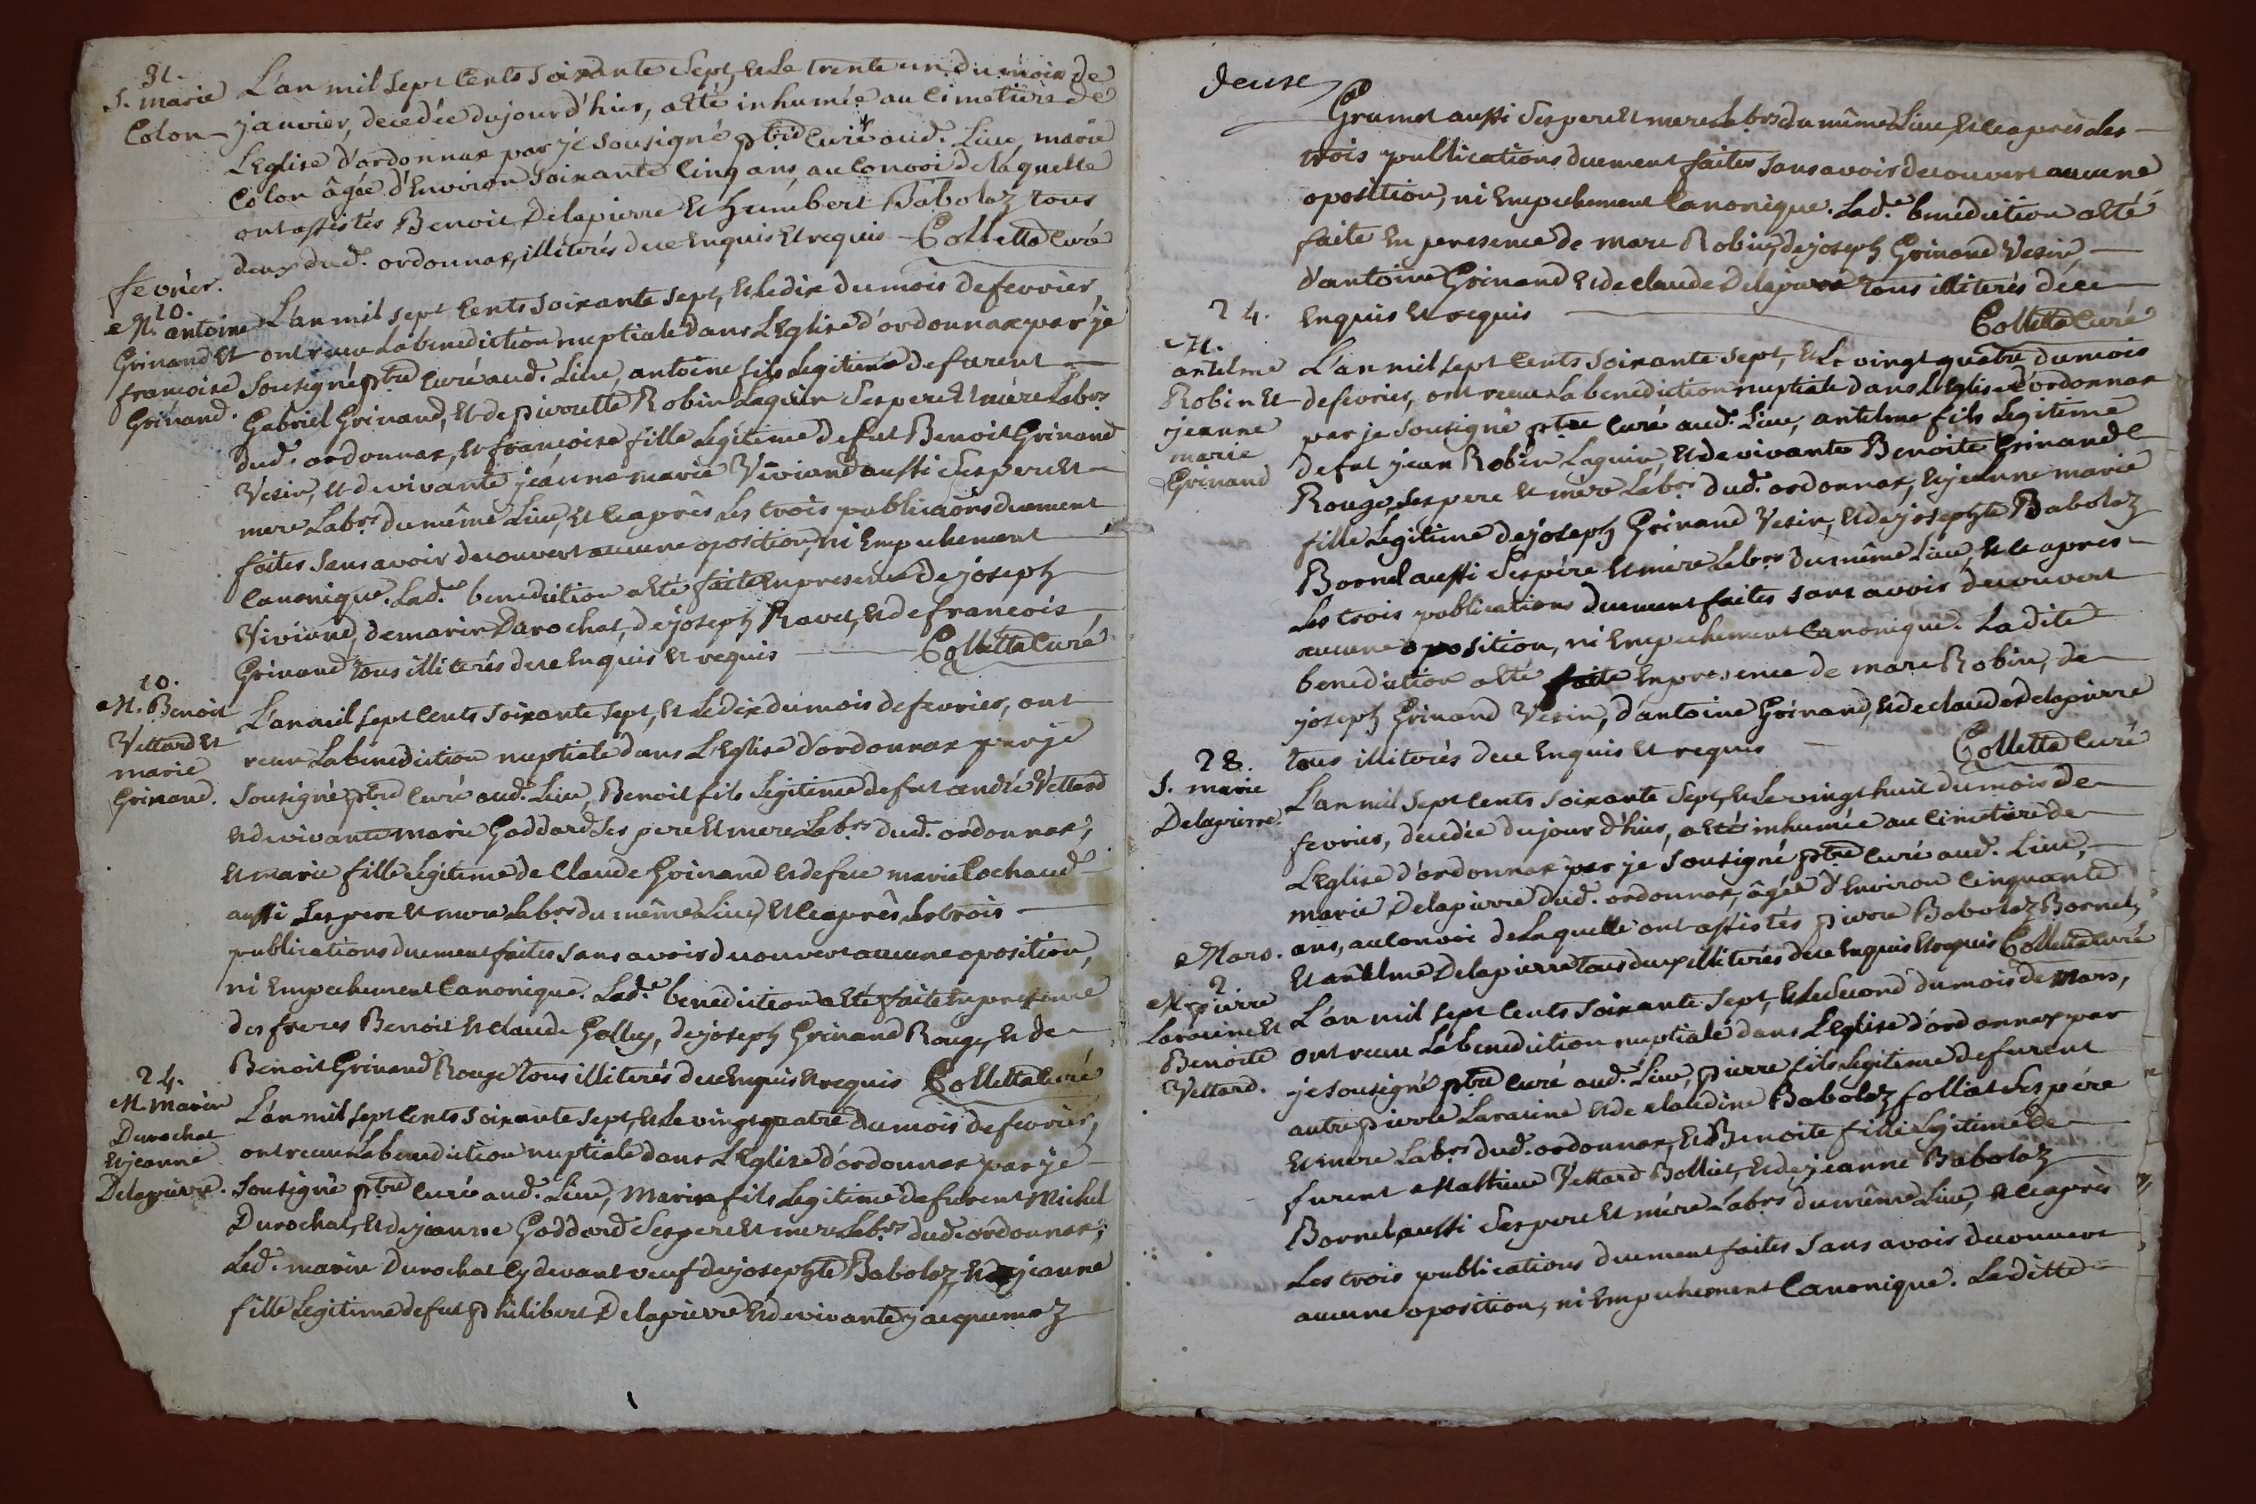 31.
S. marie
Colon
L'an mil sept Cents soixante sept, et Le trente un du mois de
janvier, decedée dujourd'hier, a été inhumée au Cimetiere de
L'Eglise d'ordonnax par je sousigné ptre Curé aud. Lieu, marie
Colon âgée d'Environ soixante Cinq ans, au Convoi de laquelle
ont assistés Benoit Delapierre et humbert Baboloz tous
deux dud. ordonnax, illiterés de ce Enquis et requis Colletta Curé
fevrier.
10.
M. antoine
Grinand et
francoise
Grinand.
L'an mil sept Cents soixante sept, et le dix du mois de fevrier
ont recu La benediction nuptiale dans L'Eglise d'ordonnax par je
sousigné ptre Curé aud. Lieu, antoine fils Legitime de furent
Gabriel Grinand, et de pierrette Robin Laguin ses pere et mère Labrs
dud. ordonnax, et francoise fille Legitime de fut Benoit Grinand
Vesin, et de vivante jeanne marie Viviand aussi ses pere et
mere Labrs du même Lieu, et ce après Les trois publicaõns duement
faites sans avoir decouvert aucune oposition, ni Empechement
Canonique. Lad.e benediction a été faite En presence de joseph
Viviand, de marin Durochat, de joseph Ravet, et de francois
Grinand tous illiterés de ce Enquis et requis Colletta Curé
10.
M. Benoit
Vettard et
marie
Grinand.
L'an mil sept Cents soixante sept, et Le dix du mois de fevrier, ont
recu La bénediction nuptiale dans L'Eglise d'ordonnax par je
sousigné ptre Curé aud. Lieu, Benoit fils Legitime de fut andré Vettard
et de vivante marie Goddard ses pere et mere Labrs dud. ordonnax,
et marie fille Legitime de Claude Grinand et de fue marie Cochaud
aussi ses pere et mere Labrs du même Lieu, et ce après Les trois
publications duement faites sans avoir decouvert aucune oposition,
ni Empechement Canonique. Lad.e benediction a été faite En presence
des freres Benoit et claude Golley, de joseph Grinand Rouge, et de
Benoit Grinand Rouge tous illiterés de ce Enquis et requis Colletta Curé
24.
M. Marin
Durochat
et jeanne
Delapierre.
L'an mil sept Cents soixante sept, et Le vingt quatre du mois de fevrier,
ont recu La benediction nuptiale dans L'Eglise d'ordonnax par je
sousigné ptre Curé aud. Lieu, Marin fils Legitime de furent Michel
Durochat, et de jeanne Goddard ses pere et mere Labrs dud. ordonnax,
Led. marin Durochat Cy devant veuf de josephte Baboloz, et jeanne
fille Legitime de fut philibert Delapierre et de vivante jacquemoz
deux
Grumet aussi ses pere et mere Labrs du même Lieu, et ce après Les
trois publications duement faites sans avoir decouvert aucune
oposition, ni Empechement Canonique. Lad.e benediction a été
faite En presence de marc Robin, de joseph Grinand Vesin,
d'antoine Grinand et de claude Delapierre tous illiterés de ce
Enquis et requis Colletta Curé
24.
M.
antelme
Robin et
jeanne
marie
Grinand
L'an mil sept Cents soixante sept, et Le vingt quatre du mois
de fevrier, ont recu La benediction nuptiale dans L'Eglise d'ordonnax
par je sousigné ptre Curé aud. Lieu, antelme fils Legitime
de fut jean Robin Laguin, et de vivante Benoite Grinand
Rouge ses pere et mere Labrs dud. ordonnax, et jeanne marie
fille Legitime de joseph Grinand Vesin, et de josephte Baboloz
Bornel aussi ses père et mere Labrs du même Lieu, et ce après
Les trois publications duement faites sans avoir decouvert
aucune oposition, ni Empechement Canonique. Ladite
benediction a été faite En presence de marc Robin, de
joseph Grinand Vesin, d'antoine Grinand, et de claude Delapierre
tous illiterés de ce Enquis et requis Colletta Curé
28.
S. marie
Delapierre.
L'an mil sept Cents soixante sept, et Le vingt huit du mois de
fevrier, decedée du jour d'hier, a été inhumée au Cimetiere de
L'Eglise d'ordonnax par je sousigné ptre Curé aud. Lieu,
marie Delapierre dud. ordonnax, âgée d'Environ Cinquante
ans, au Convoi de Laquelle ont assistés pierre Baboloz Bornel,
et antelme Delapierre tous deux illiterés de ce Enquis et requis Colletta Curé
Mars.
2
M. pierre
Laracine et
Benoite
Vettard.
L'an mil sept Cents soixante sept, et Le second du mois de Mars,
ont recu La benediction nuptiale dans L'Eglise d'ordonnax par
je sousigné ptre Curé aud. Lieu, pierre fils Legitime de furent
autre pierre Laracine et de claudine Baboloz folliat ses pére
et mere Labrs dud. ordonnax, et Benoite fille Legitime de
furent Mathieu Vettard Bolliet, et de jeanne Baboloz
Bornel aussi ses pere et mére Labrs du même Lieu, et ce après
Les trois publications duement faites sans avoir decouvert
aucune oposition, ni Empechement Canonique. Laditte